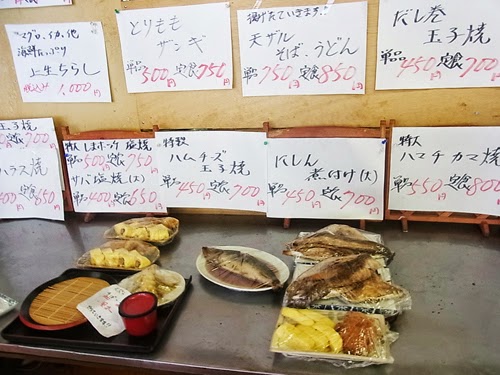 マグロ、イカ、他
海鮮たっぷり
上生ちらし
1,000円
とりもも
ザンギ
単品500円 定食750円
揚げたていきます!!
天ザル
そば、うどん
単品650円 定食850円
だし巻
玉子焼
単品450円 定食700円
玉子焼
定食700円
ハラス焼
400円 定食650円
特大 しまホッケ 塩焼
単品500円 定食750円
サバ塩焼(大)
単品400円 定食650円
特製
ハムチーズ
玉子焼
単品450円 定食700円
にしん
煮付け(大)
単品450円 定食700円
特大
ハマチカマ焼
単品550円 定食800円